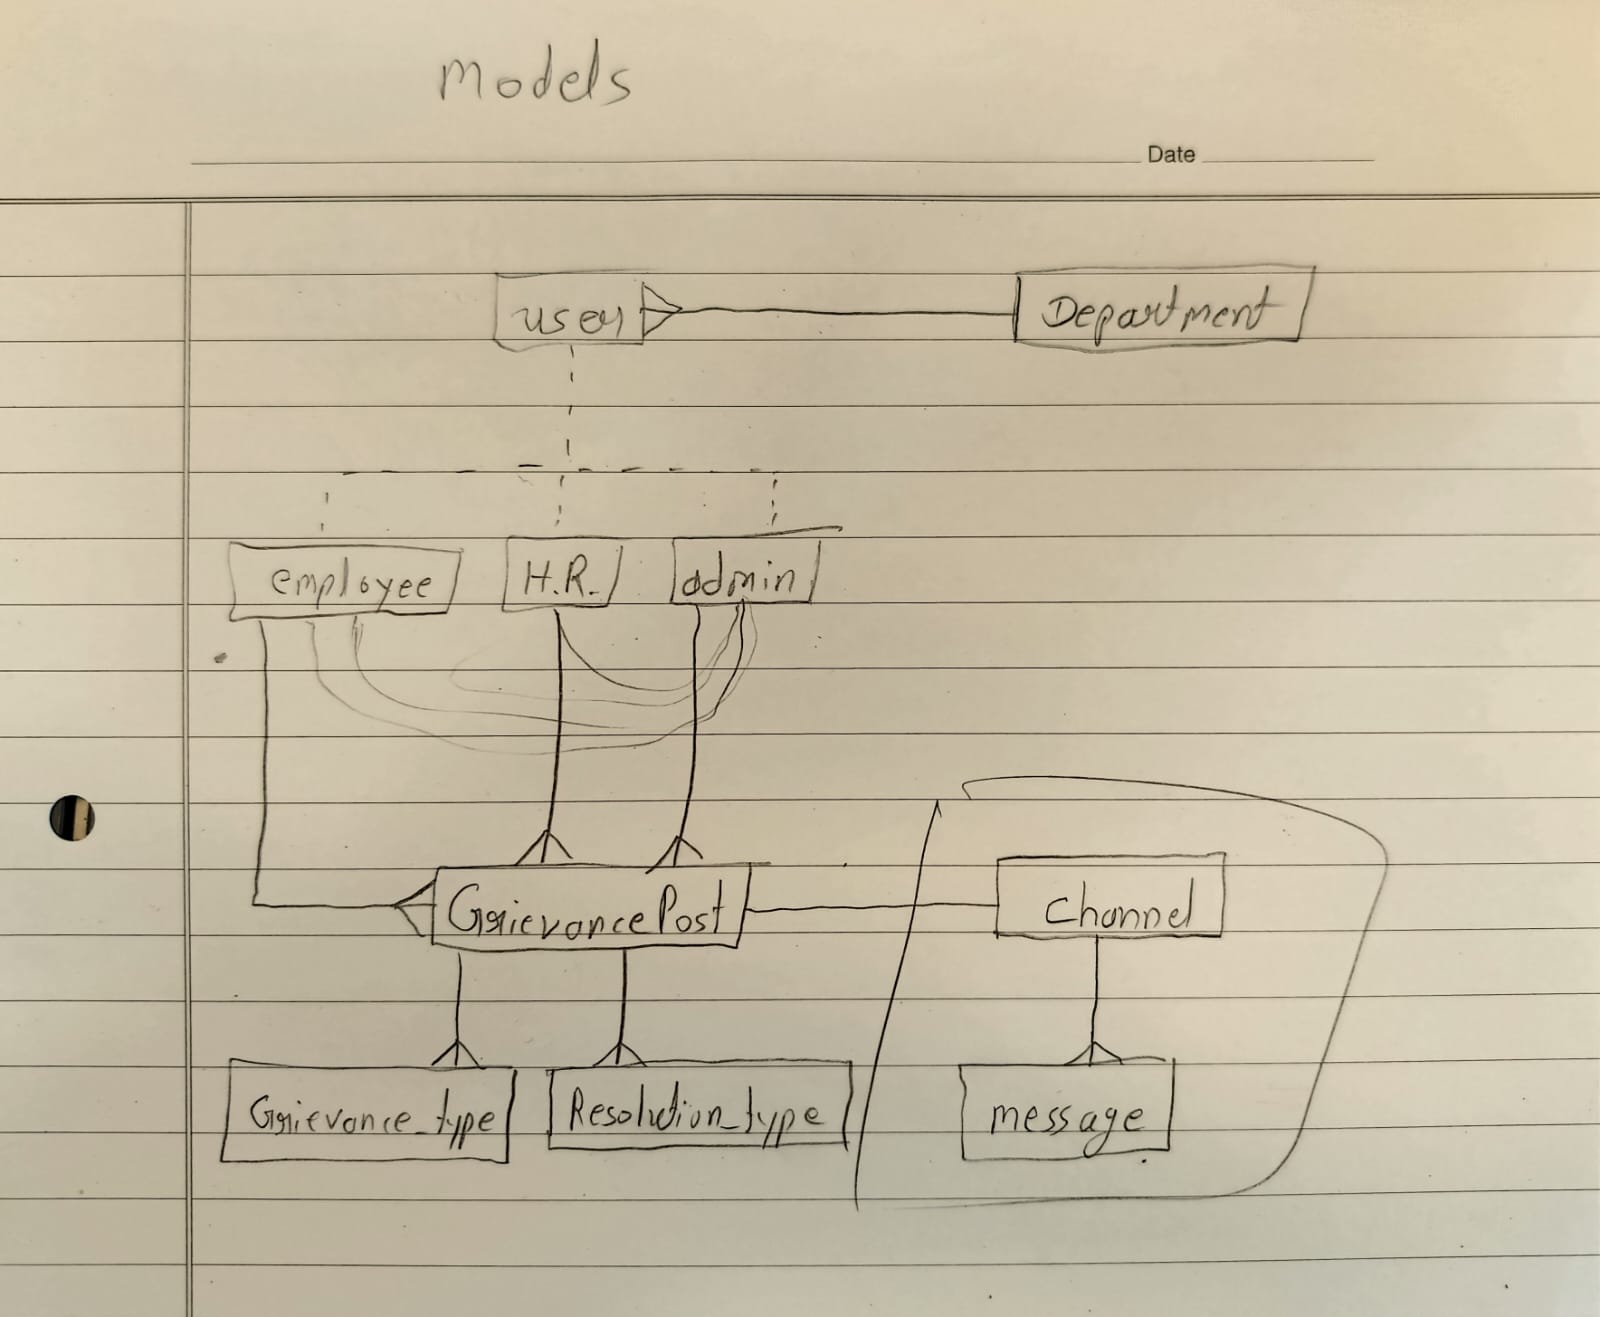 Models
Date
user
Department
employee
H.R.
admin
Grievance Post
Channel
Grievance_type
Resolution_type
message